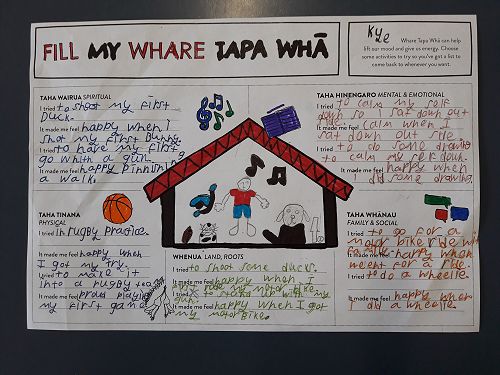 FILL MY WHARE TAPA WHĀ
Kyle
Whare Tapa Whā can help
lift our mood and give us energy. Choose
some activities to try so you've got a list to
come back to whenever you want.
TAHA WAIRUA SPIRITUAL
I tried to shoot my first
duck.
It made me feel happy when I
shot my first bunny.
I tried to have my first
go whith a gun.
It made me feel happy
a walk.
TAHA HINENGARO MENTAL & EMOTIONAL
I tried to calm my self
down so I sat down out
It made me feel calm when I
sat down out side.
I tried to do some drawing
to calm my self down.
It made me feel happy when
I did some drawing.
TAHA TINANA
PHYSICAL
I tried in rugby practice.
It made me feel happy when
I got my try.
I tried to make it
into a rugby team
It made me feel proud playing
my first game
WHENUA LAND, ROOTS
I tried to shoot some ducks.
It made me feel happy when I
my motor bike.
I tried to stand up with my
gun.
It made me feel happy when I got
my motor bike.
TAHA WHĀNAU
FAMILY & SOCIAL
I tried to go for a
motor bike ride with
family
It made me feel happy when
went for a ride.
I tried to do a wheelie.
It made me feel happy when
I did a wheelie.